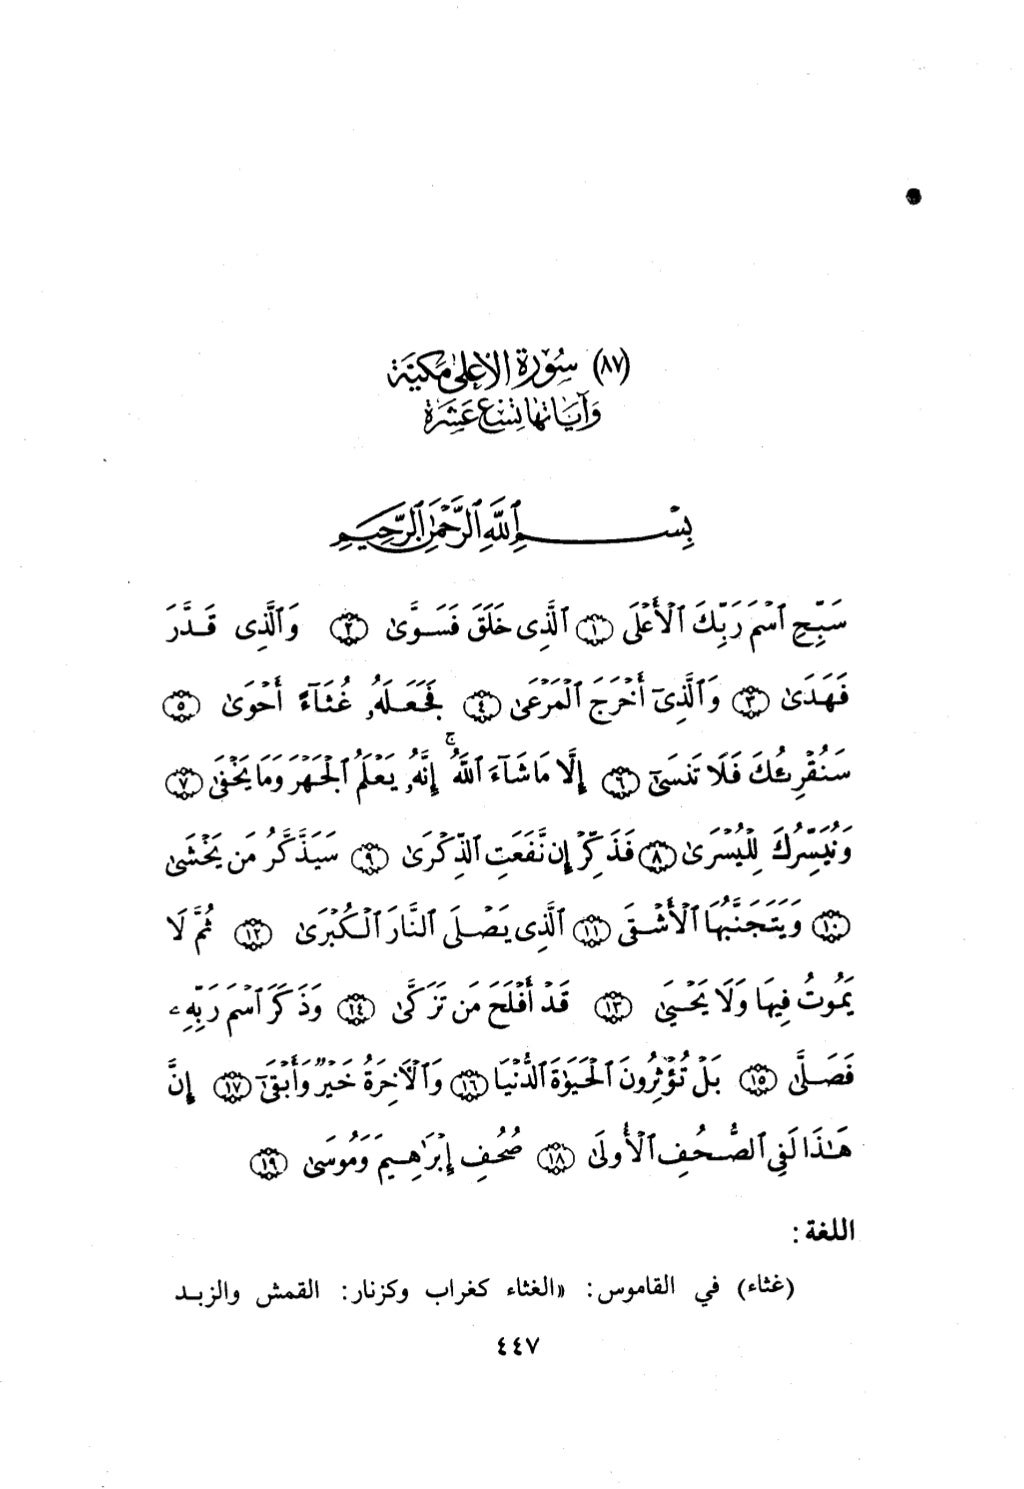 (٨٧) سُورَةُ الأَعلىٰ مَكيَّة
وَآيَاتُهَا تِسْعَ عَشَرَة
بِسْمِ ٱللَّهِ ٱلرَّحْمَٰنِ ٱلرَّحِيمِ
سَبِّحِ ٱسْمَ رَبِّكَ ٱلْأَعْلَى ١ ٱلَّذِى خَلَقَ فَسَوَّىٰ ٢ وَٱلَّذِى قَدَّرَ
فَهَدَىٰ ٣ وَٱلَّذِىٓ أَخْرَجَ ٱلْمَرْعَىٰ ٤ فَجَعَلَهُۥ غُثَآءً أَحْوَىٰ ٥
سَنُقْرِئُكَ فَلَا تَنسَىٰٓ ٦ إِلَّا مَا شَآءَ ٱللَّهُ ۚ إِنَّهُۥ يَعْلَمُ ٱلْجَهْرَ وَمَا يَخْفَىٰ ٧
وَنُيَسِّرُكَ لِلْيُسْرَىٰ ٨ فَذَكِّرْ إِن نَّفَعَتِ ٱلذِّكْرَىٰ ٩ سَيَذَّكَّرُ مَن يَخْشَىٰ
١٠ وَيَتَجَنَّبُهَا ٱلْأَشْقَى ١١ ٱلَّذِى يَصْلَى ٱلنَّارَ ٱلْكُبْرَىٰ ١٢ ثُمَّ لَا
يَمُوتُ فِيهَا وَلَا يَحْيَىٰ ١٣ قَدْ أَفْلَحَ مَن تَزَكَّىٰ ١٤ وَذَكَرَ ٱسْمَ رَبِّهِۦ
فَصَلَّىٰ ١٥ بَلْ تُؤْثِرُونَ ٱلْحَيَوٰةَ ٱلدُّنْيَا ١٦ وَٱلْـَٔاخِرَةُ خَيْرٌ وَأَبْقَىٰٓ ١٧ إِنَّ
هَٰذَا لَفِى ٱلصُّحُفِ ٱلْأُولَىٰ ١٨ صُحُفِ إِبْرَٰهِيمَ وَمُوسَىٰ ١٩
اللغة :
(غثاء) في القاموس: «الغثاء كغراب وكزنار: القمش والزبد
٤٤٧